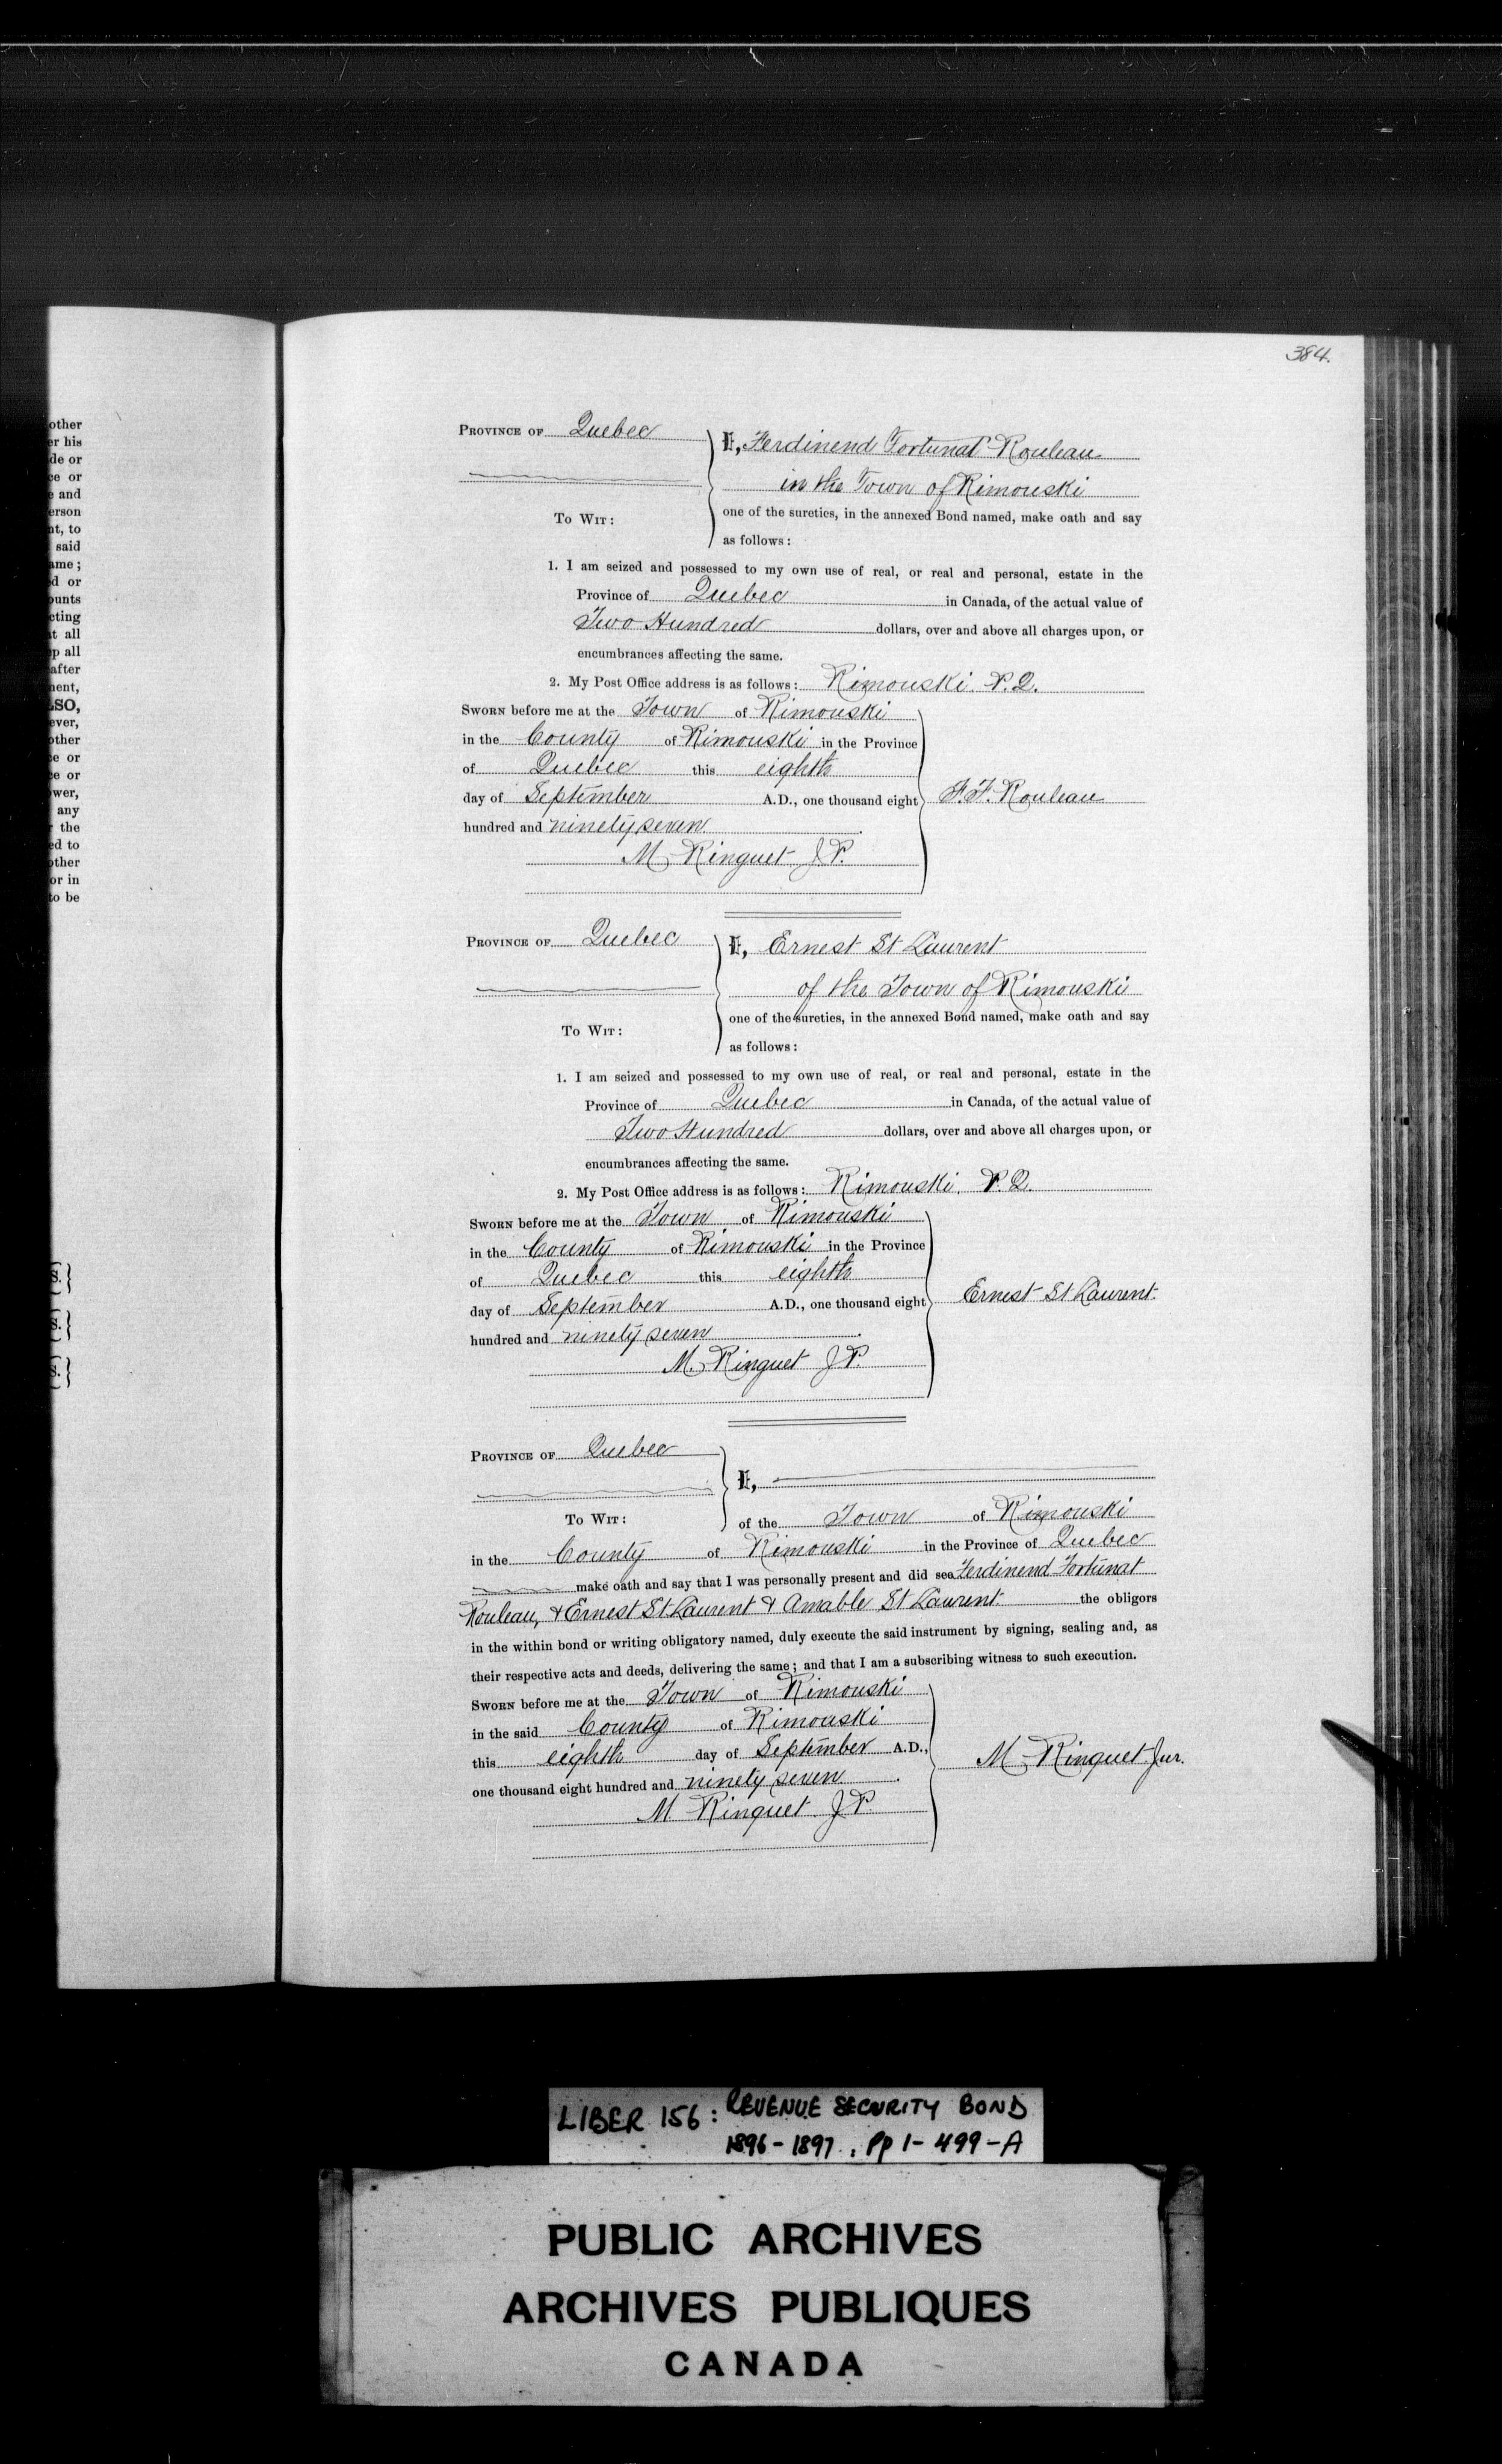 384.
other
er his
de or
ce or
e and
erson
nt, to
said
ame ;
d or
ounts
cting
t all
p all
after
nent,
LSO,
ever,
other
ce or
ce or
wer,
any
r the
ed to
other
or in
to be
S.}
S.}
S.}
PROVINCE OF Quebec
I, Ferdinend Fortunat Rouleau
in the Town of Rimouski
TO WIT :
one of the sureties, in the annexed Bond named, make oath and say
as follows :
1. I am seized and possessed to my own use of real, or real and personal, estate in the
Province of Quebec in Canada, of the actual value of
Two Hundred dollars, over and above all charges upon, or
encumbrances affecting the same.
2. My Post Office address is as follows : Rimouski. P.Q.
SWORN before me at the Town of Rimouski
in the County of Rimouski in the Province
of Quebec this eighth
day of September A.D., one thousand eight
F.F. Rouleau
hundred and ninety seven.
M Ringuet J.P.
PROVINCE OF Quebec
I, Ernest St Laurent
of the Town of Rimouski
TO WIT :
one of the sureties, in the annexed Bond named, make oath and say
as follows :
1. I am seized and possessed to my own use of real, or real and personal, estate in the
Province of Quebec in Canada, of the actual value of
Two Hundred dollars, over and above all charges upon, or
encumbrances affecting the same.
2. My Post Office address is as follows : Rimouski. P.Q.
SWORN before me at the Town of Rimouski
in the County of Rimouski in the Province
of Quebec this eighth
day of September A.D., one thousand eight
Ernest St Laurent.
hundred and ninety seven.
M. Ringuet J.P.
PROVINCE OF Quebec
I,
TO WIT :
of the Town of Rimouski
in the County of Rimouski in the Province of Quebec
make oath and say that I was personally present and did see Ferdinend Fortunat
Rouleau, & Ernest St Laurent & Amable St Laurent the obligors
in the within bond or writing obligatory named, duly execute the said instrument by signing, sealing and, as
their respective acts and deeds, delivering the same ; and that I am a subscribing witness to such execution.
SWORN before me at the Town of Rimouski
in the said County of Rimouski
this eighth day of September A.D.,
M Ringuet Jur.
one thousand eight hundred and ninety seven.
M Ringuet. J.P.
LIBER 156 : REVENUE SECURITY BOND
1896 - 1897. Pp 1 - 499 - A
PUBLIC ARCHIVES
ARCHIVES PUBLIQUES
CANADA